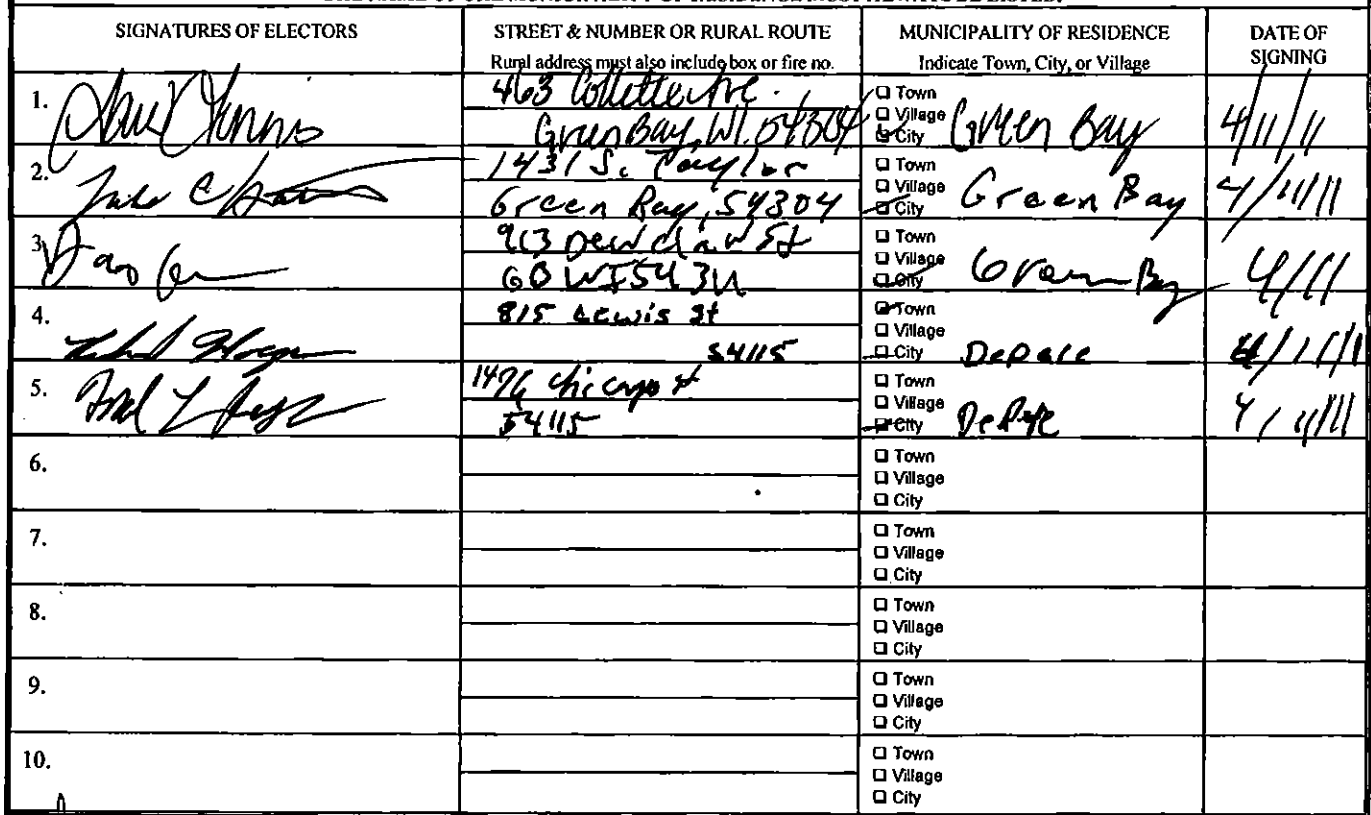 SIGNATURES OF ELECTORS
STREET & NUMBER OR RURAL ROUTE
Rural address must also include box or fire no.
MUNICIPALITY OF RESIDENCE
Indicate Town, City, or Village
DATE OF
SIGNING
1.
463 Collette Ave.
Green Bay, WI. 54304
Town
Village
City
Green Bay
4/11/11
2.
1431 S. Taylor
Green Bay, 54304
Town
Village
City
Green Bay
4/11/11
3.
St
GB WI
Town
Village
City
Green Bay
4/11
4.
815 Lewis St
54115
Town
Village
City
DePere
4/11/11
5.
Chicago St
54115
Town
Village
City
DePere
4/11/11
6.
Town
Village
City
7.
Town
Village
City
8.
Town
Village
City
9.
Town
Village
City
10.
Town
Village
City